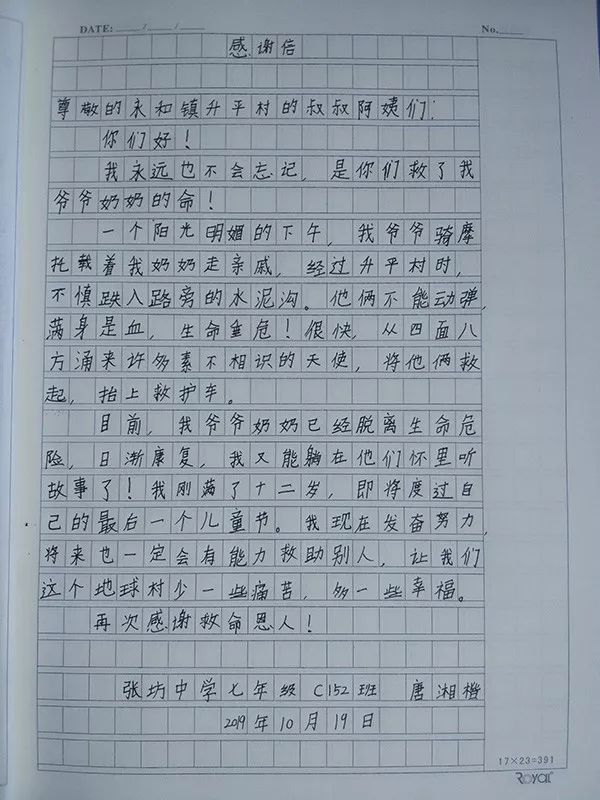 DATE: / /
No.
感谢信
尊敬的永和镇升平村的叔叔阿姨们:
你们好！
我永远也不会忘记，是你们救了我
爷爷奶奶的命！
一个阳光明媚的下午，我爷爷骑摩
托载着我奶奶走亲戚，经过升平村时，
不慎跌入路旁的水泥沟。他俩不能动弹，
满身是血，生命垂危！很快，从四面八
方涌来许多素不相识的天使，将他俩救
起，抬上救护车。
目前，我爷爷奶奶已经脱离生命危
险，日渐康复，我又能躺在他们怀里听
故事了！我刚满了十二岁，即将度过自
己的最后一个儿童节。我现在发奋努力，
将来也一定会有能力救助别人，让我们
这个地球村少一些痛苦，多一些幸福。
再次感谢救命恩人！
张坊中学七年级 C152班 唐湘
2019年10月19日
17×23=391
Royal